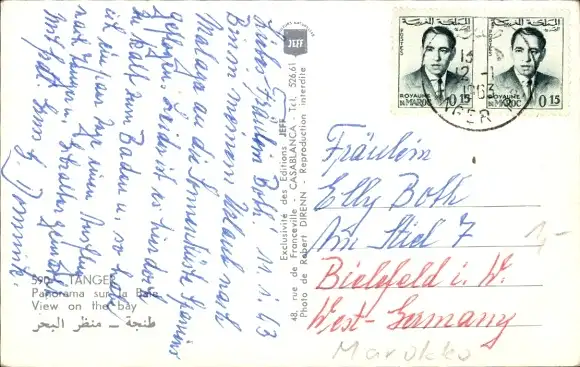 Liebes Fräulein Both! 11.1.63
Bin in meinem Urlaub nach
Malaga an die Sonnenküste Spaniens
geflogen. Leider ist es hier doch
zu kalt zum Baden u. so habe
ich ein paar Tage einen
nach Tanger u. Gibraltar gemacht.
Mit frdl. Grüßen
590 - TANGER
Panorama sur la Baie
View on the bay
طنجة – منظر البحر
Exclusivité des Editions JEFF
48, rue de Franceville - CASABLANCA - Tél. 526.61
Photo de Robert DIRENN - Reproduction interdite
JEFF
المملكة المغربية
POSTES
ROYAUME
DU MAROC
0.15
المملكة المغربية
ROYAUME
DU MAROC
0.15
1963
Fräulein
Elly Both
Am Stiel 7
Bielefeld i. W.
West-Germany
1,-
Marokko